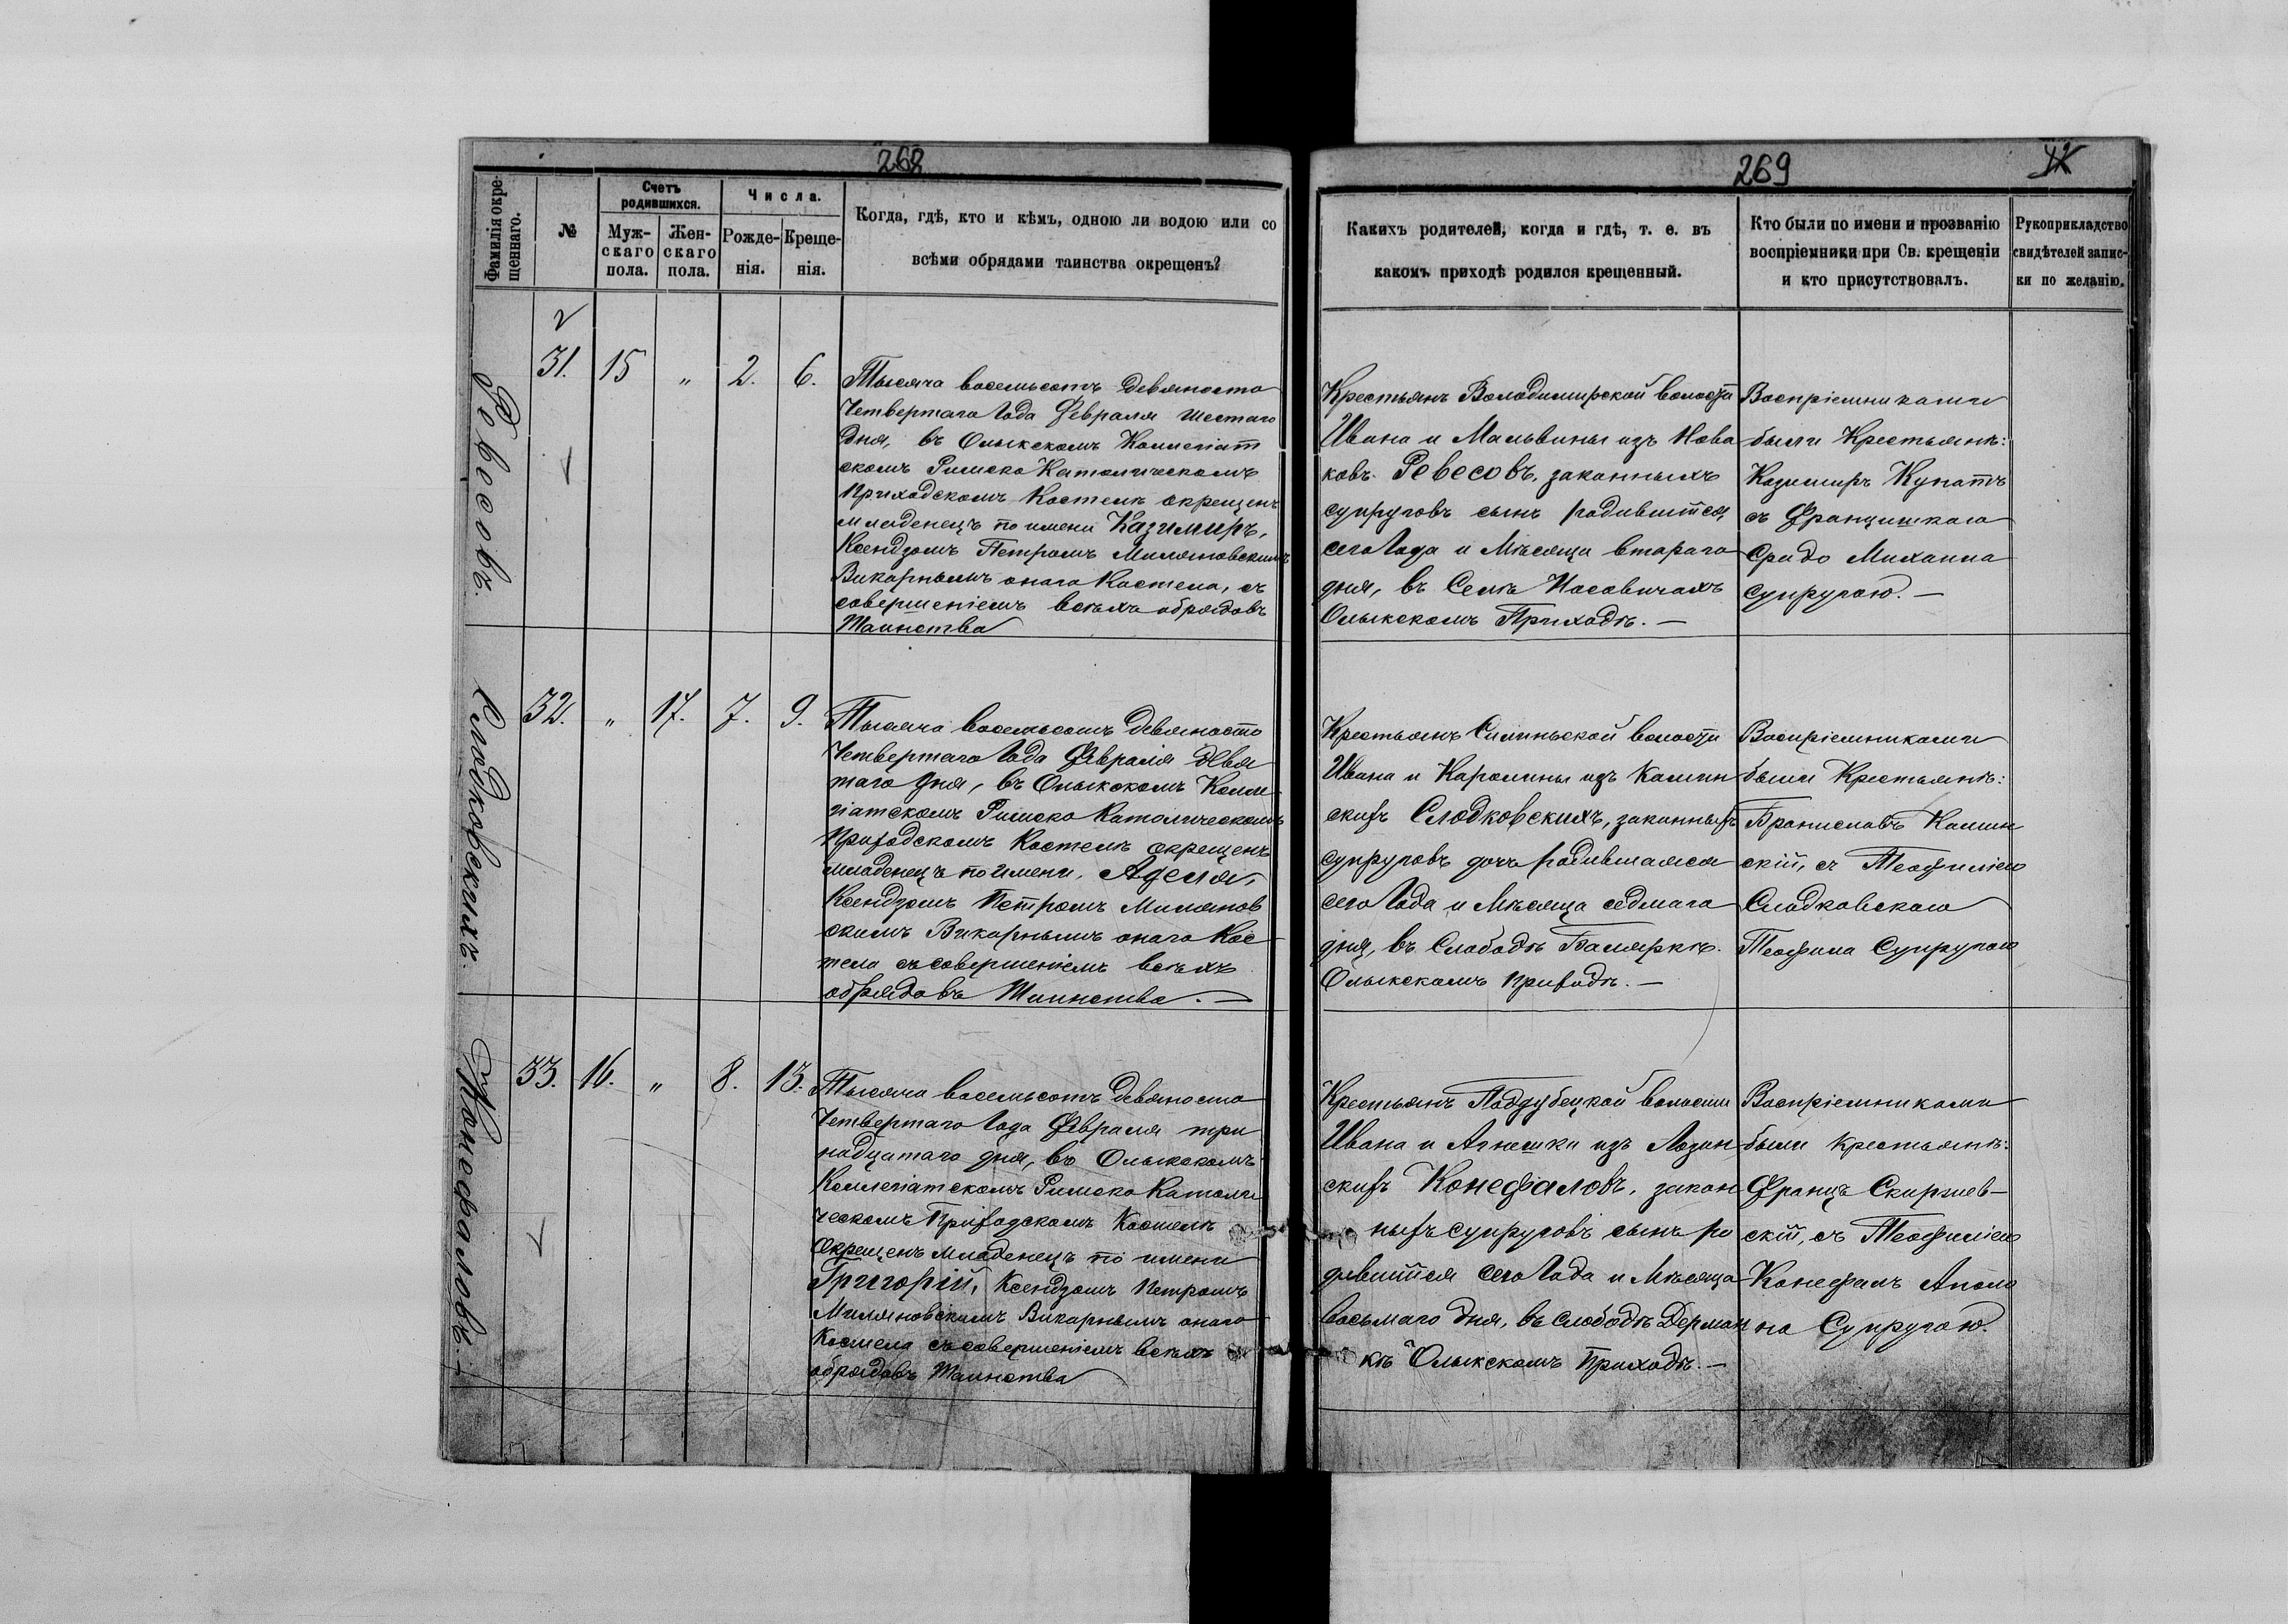 268
Фамилія окре-
щеннаго.
№
Счетъ
родившихся.
Муж-
скаго
пола.
Жен-
скаго
пола.
Числа.
Рожде-
нія.
Креще-
нія.
Когда, гдѣ, кто и кѣмъ, одною ли водою или со
всѣми обрядами таинства окрещенъ?
Ревесовъ.
31.
15
"
2.
6.
Тысяча восемьсотъ девяносто
Четвертаго Года Февраля шестаго
дня, въ Олыкскомъ Коллегіат
скомъ Римско Католическомъ
Приходскомъ Костелѣ окрещенъ
младенецъ по имени Казимиръ,
Ксендзомъ Петромъ Миляновскимъ
Викарнымъ онаго Костела, съ
совершеніемъ всѣхъ обрядовъ
Таинства
Слодковскихъ.
32.
"
17.
7.
9.
Тысяча восемьсотъ девяносто
Четвертаго Года Февраля Девя
таго дня, въ Олыкскомъ Колле
гіатскомъ Римско Католическомъ
Приходскомъ Костелѣ окрещенъ
младенецъ по имени, Аделя,
Ксендзомъ Петромъ Милянов
скимъ Викарнымъ онаго Кос
тела съ совершеніемъ всѣхъ
обрядовъ Таинства. —
Конефаловъ.
33.
16.
"
8.
13.
Тысяча восемьсотъ девяносто
Четвертаго Года Февраля три
надцатаго дня, въ Олыкскомъ
Коллегіатскомъ Римско Католи
ческомъ Приходскомъ Костелѣ
Окрещенъ младенецъ по имени
Григорій, Ксендзомъ Петромъ
Миляновскимъ Викарнымъ онаго
Костела съ совершеніемъ всѣхъ
обрядовъ Таинства
269
Какихъ родителей, когда и гдѣ, т. е. въ
какомъ приходѣ родился крещенный.
Кто были по имени и прозванію
воспріемники при Св. крещеніи
и кто присутствовалъ.
Рукоприкладство
свидѣтелей запис-
ки по желанію.
Крестьянъ Володимирской волости
Ивана и Мальвины изъ Нова
ковъ Ревесовъ, законныхъ
супруговъ сынъ родившійся,
сего Года и Мѣсяца втораго
дня, въ Селѣ Носовичахъ
Олыкскомъ Приходѣ. —
Воспріемниками
были Крестьянѣ:
Казимиръ
съ Францишкаю
Михаила
супругою. —
Крестьянъ Силиньской волости
Ивана и Каролины изъ Камин
скихъ Слодковскихъ, законныхъ
супруговъ дочь родившаяся
сего Года и Мѣсяца седмаго
дня, въ Слободѣ Балярке.
Олыкскомъ приходѣ. —
Воспріемниками
были Крестьянѣ:
Брониславъ Камин
скій, съ Теофиліею
Слодковскаю
Теофила Супругою
Крестьянъ Поддубецкой волости
Ивана и Агнешки изъ Лозин
скихъ Конефаловъ, закон
ныхъ супруговъ сынъ ро
дившійся сего Года и Мѣсяца
восьмаго дня, въ Слободѣ Дерман
кѣ Олыкскомъ Приходѣ. —
Воспріемниками
были крестьянѣ:
Францъ Скиржев-
скій, съ Теофиліею
Конефалъ Аполо
на Супругою.